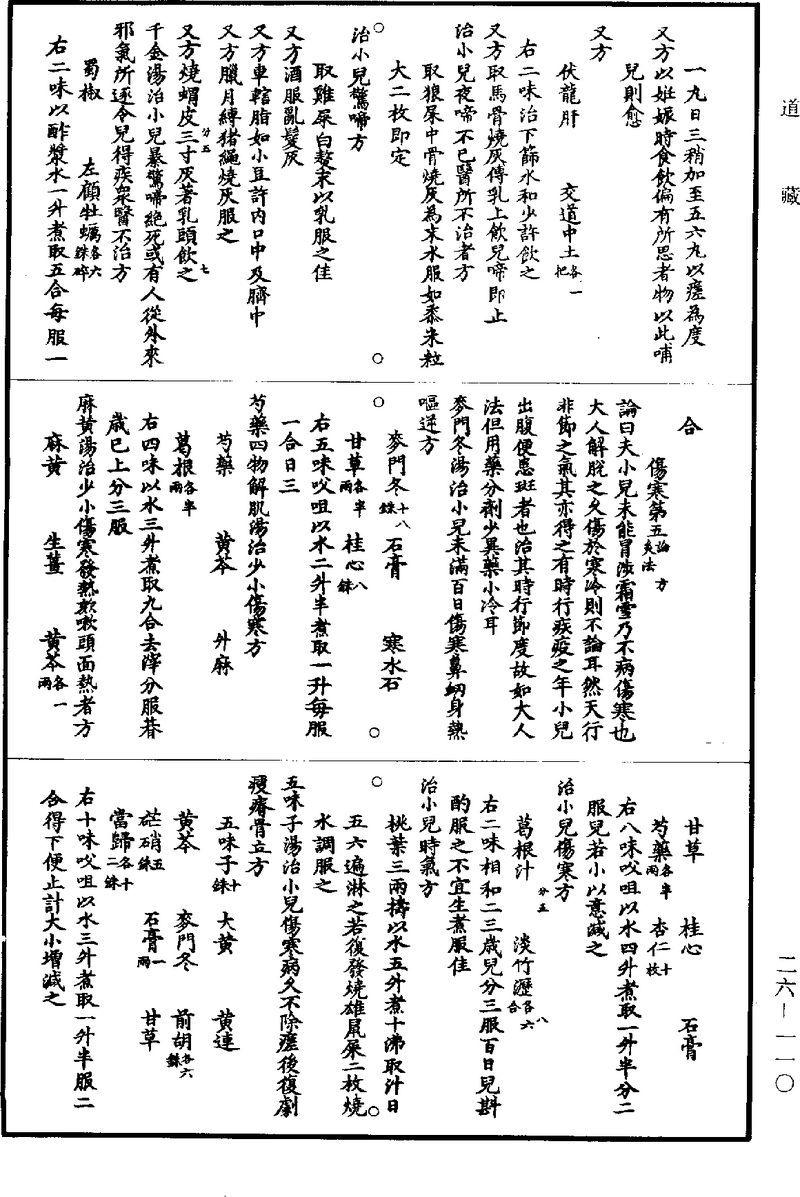 道藏
一丸日三稍加至五六丸以瘥為度
又方以妊娠時食飲偏有所思者物以此哺
兒則愈
又方
伏龍肝 交道中土各一把
右二味治下篩水和少許飲之
又方取馬骨燒灰傅乳上飲兒啼即止
治小兒夜啼不已醫所不治者方
取狼屎中骨燒灰為末水服如黍米粒
大二枚即定
治小兒驚啼方
取雞屎白熬末以乳服之佳
又方酒服亂髮灰
又方車轄脂如小豆許內口中及臍中
又方臘月縛猪繩燒灰服之
又方燒蝟皮三寸灰著乳頭飲之
分五 七
千金湯治小兒暴驚啼絕死或有人從外來
邪氣所逐令兒得疾眾醫不治方
蜀椒 左顧牡蠣各六銖碎
右二味以酢漿水一升煮取五合每服一
合
傷寒第五論 方 灸法
論曰夫小兒未能冒涉霜雪乃不病傷寒也
大人解脫之久傷於寒冷則不論耳然天行
非節之氣其亦得之有時行疾疫之年小兒
出腹便患斑者也治其時行節度故如大人
法但用藥分劑少異藥小冷耳
麥門冬湯治小兒未滿百日傷寒鼻衂身熱
嘔逆方
麥門冬十八銖 石膏 寒水石
甘草各半兩 桂心八銖
右五味㕮咀以水二升半煮取一升每服
一合日三
芍藥四物解肌湯治少小傷寒方
芍藥 黃芩 升麻
葛根各半兩
右四味以水三升煮取九合去滓分服朞
歲已上分三服
麻黃湯治少小傷寒發熱欬嗽頭面熱者方
麻黃 生薑 黃芩各一兩
甘草 桂心 石膏
芍藥各半兩 杏仁十枚
右八味㕮咀以水四升煮取一升半分二
服兒若小以意減之
治小兒傷寒方
葛根汁 淡竹瀝各六合
分五 八
右二味相和二三歲兒分三服百日兒斟
酌服之不宜生煮服佳
治小兒時氣方
桃葉三兩擣以水五升煮十沸取汁日
五六遍淋之若復發燒雄鼠屎二枚燒
水調服之
五味子湯治小兒傷寒病久不除瘥後復劇
瘦瘠骨立方
五味子十銖 大黃 黃連
黃芩 麥門冬 前胡各六銖
芒硝五銖 石膏一兩 甘草
當歸各十二銖
右十味㕮咀以水三升煮取一升半服二
合得下便止計大小增減之
二六—一一〇